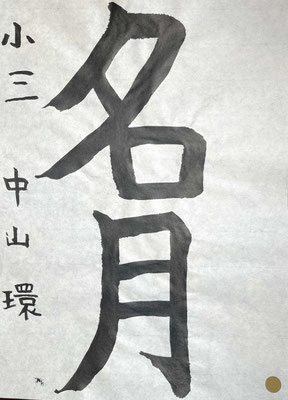 名月
小三 中山 環